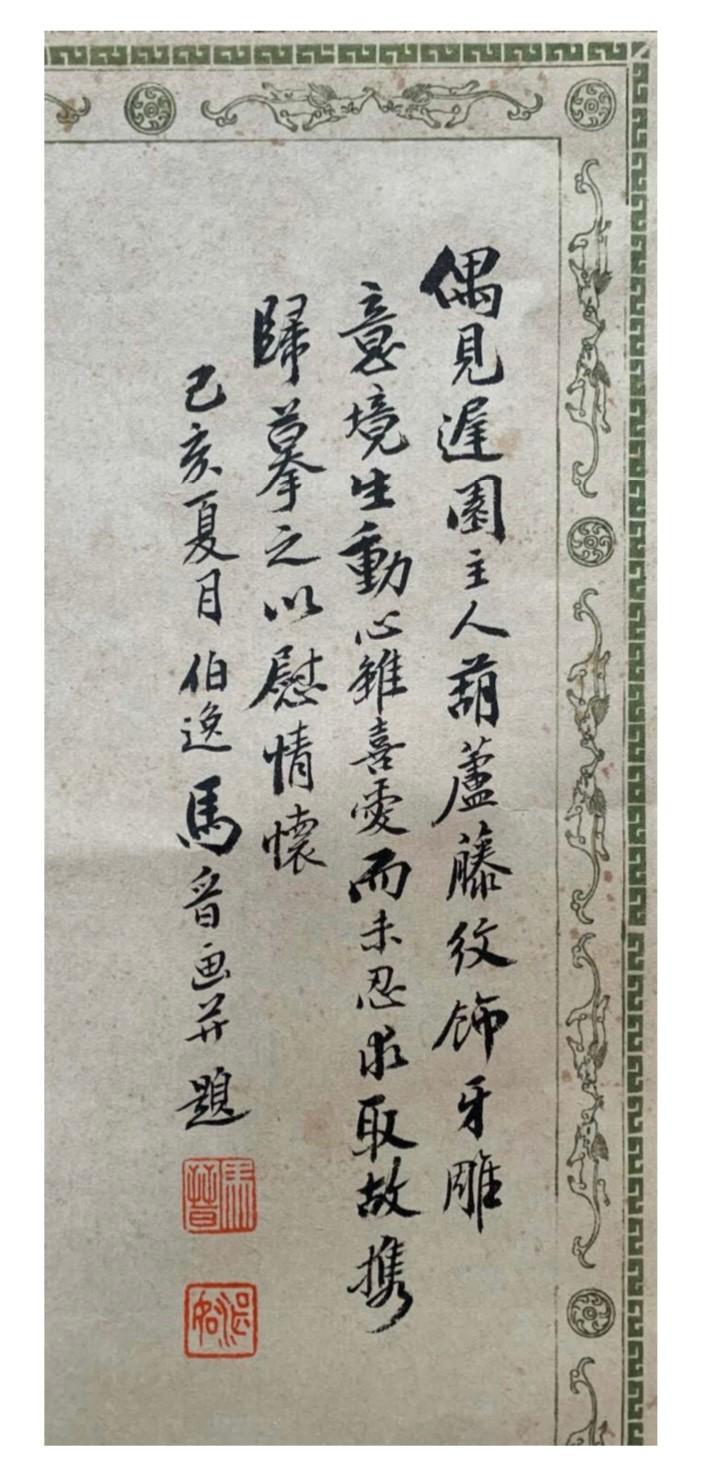 偶見遲園主人葫蘆藤紋飾牙雕
意境生動心雖喜愛而未忍求取故携
歸摹之以慰情懷
己亥夏月伯逸馬晋画并題
馬晉